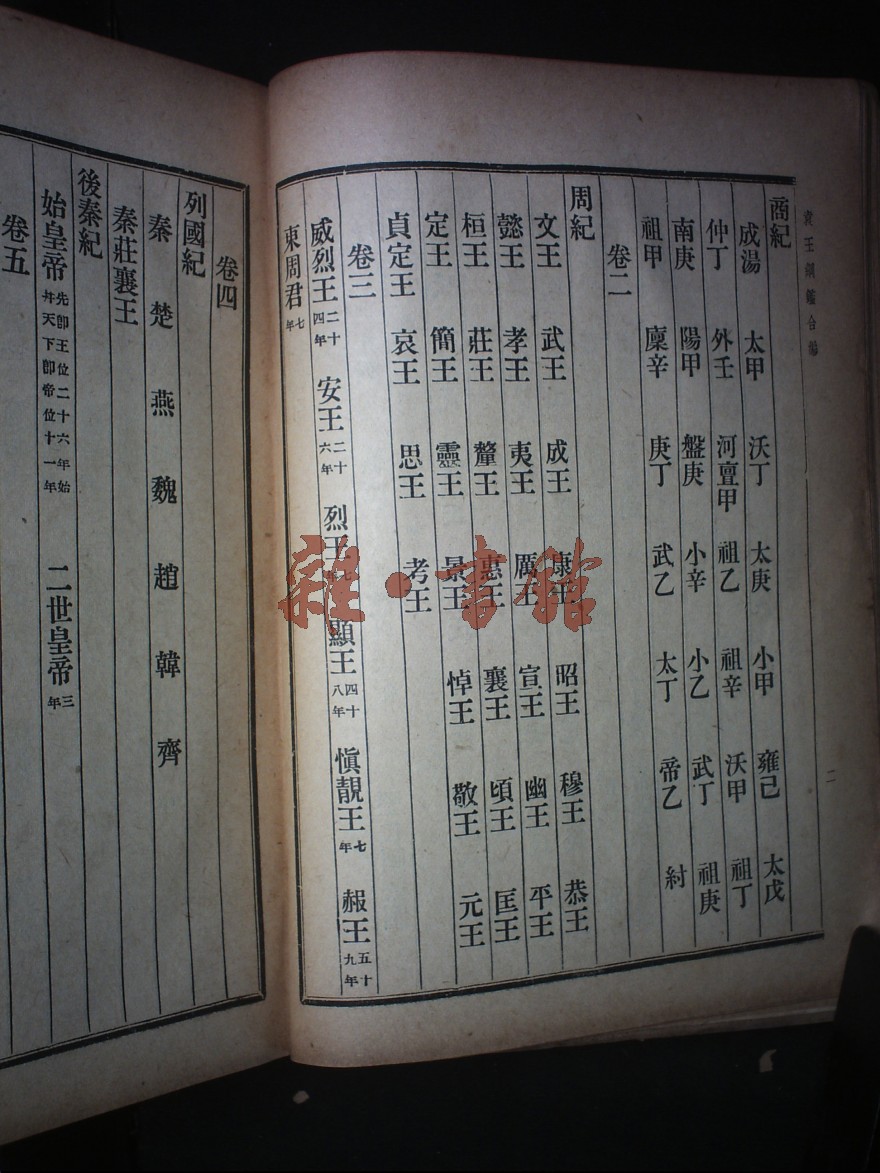 袁王綱鑑合編
二
商紀
成湯 太甲 沃丁 太庚 小甲 雍己 太戊
仲丁 外壬 河亶甲 祖乙 祖辛 沃甲 祖丁
南庚 陽甲 盤庚 小辛 小乙 武丁 祖庚
祖甲 廩辛 庚丁 武乙 太丁 帝乙 紂
卷二
周紀
文王 武王 成王 康王 昭王 穆王 恭王
懿王 孝王 夷王 厲王 宣王 幽王 平王
桓王 莊王 釐王 惠王 襄王 頃王 匡王
定王 簡王 靈王 景王 悼王 敬王 元王
貞定王 哀王 思王 考王
卷三
威烈王二十四年 安王二十六年 烈王七年 顯王四十八年 愼靚王七年 赧王五十九年
東周君七年
卷四
列國紀
秦 楚 燕 魏 趙 韓 齊
秦莊襄王
後秦紀
始皇帝先卽王位二十六年始幷天下卽帝位十一年 二世皇帝三年
卷五
雜·書館